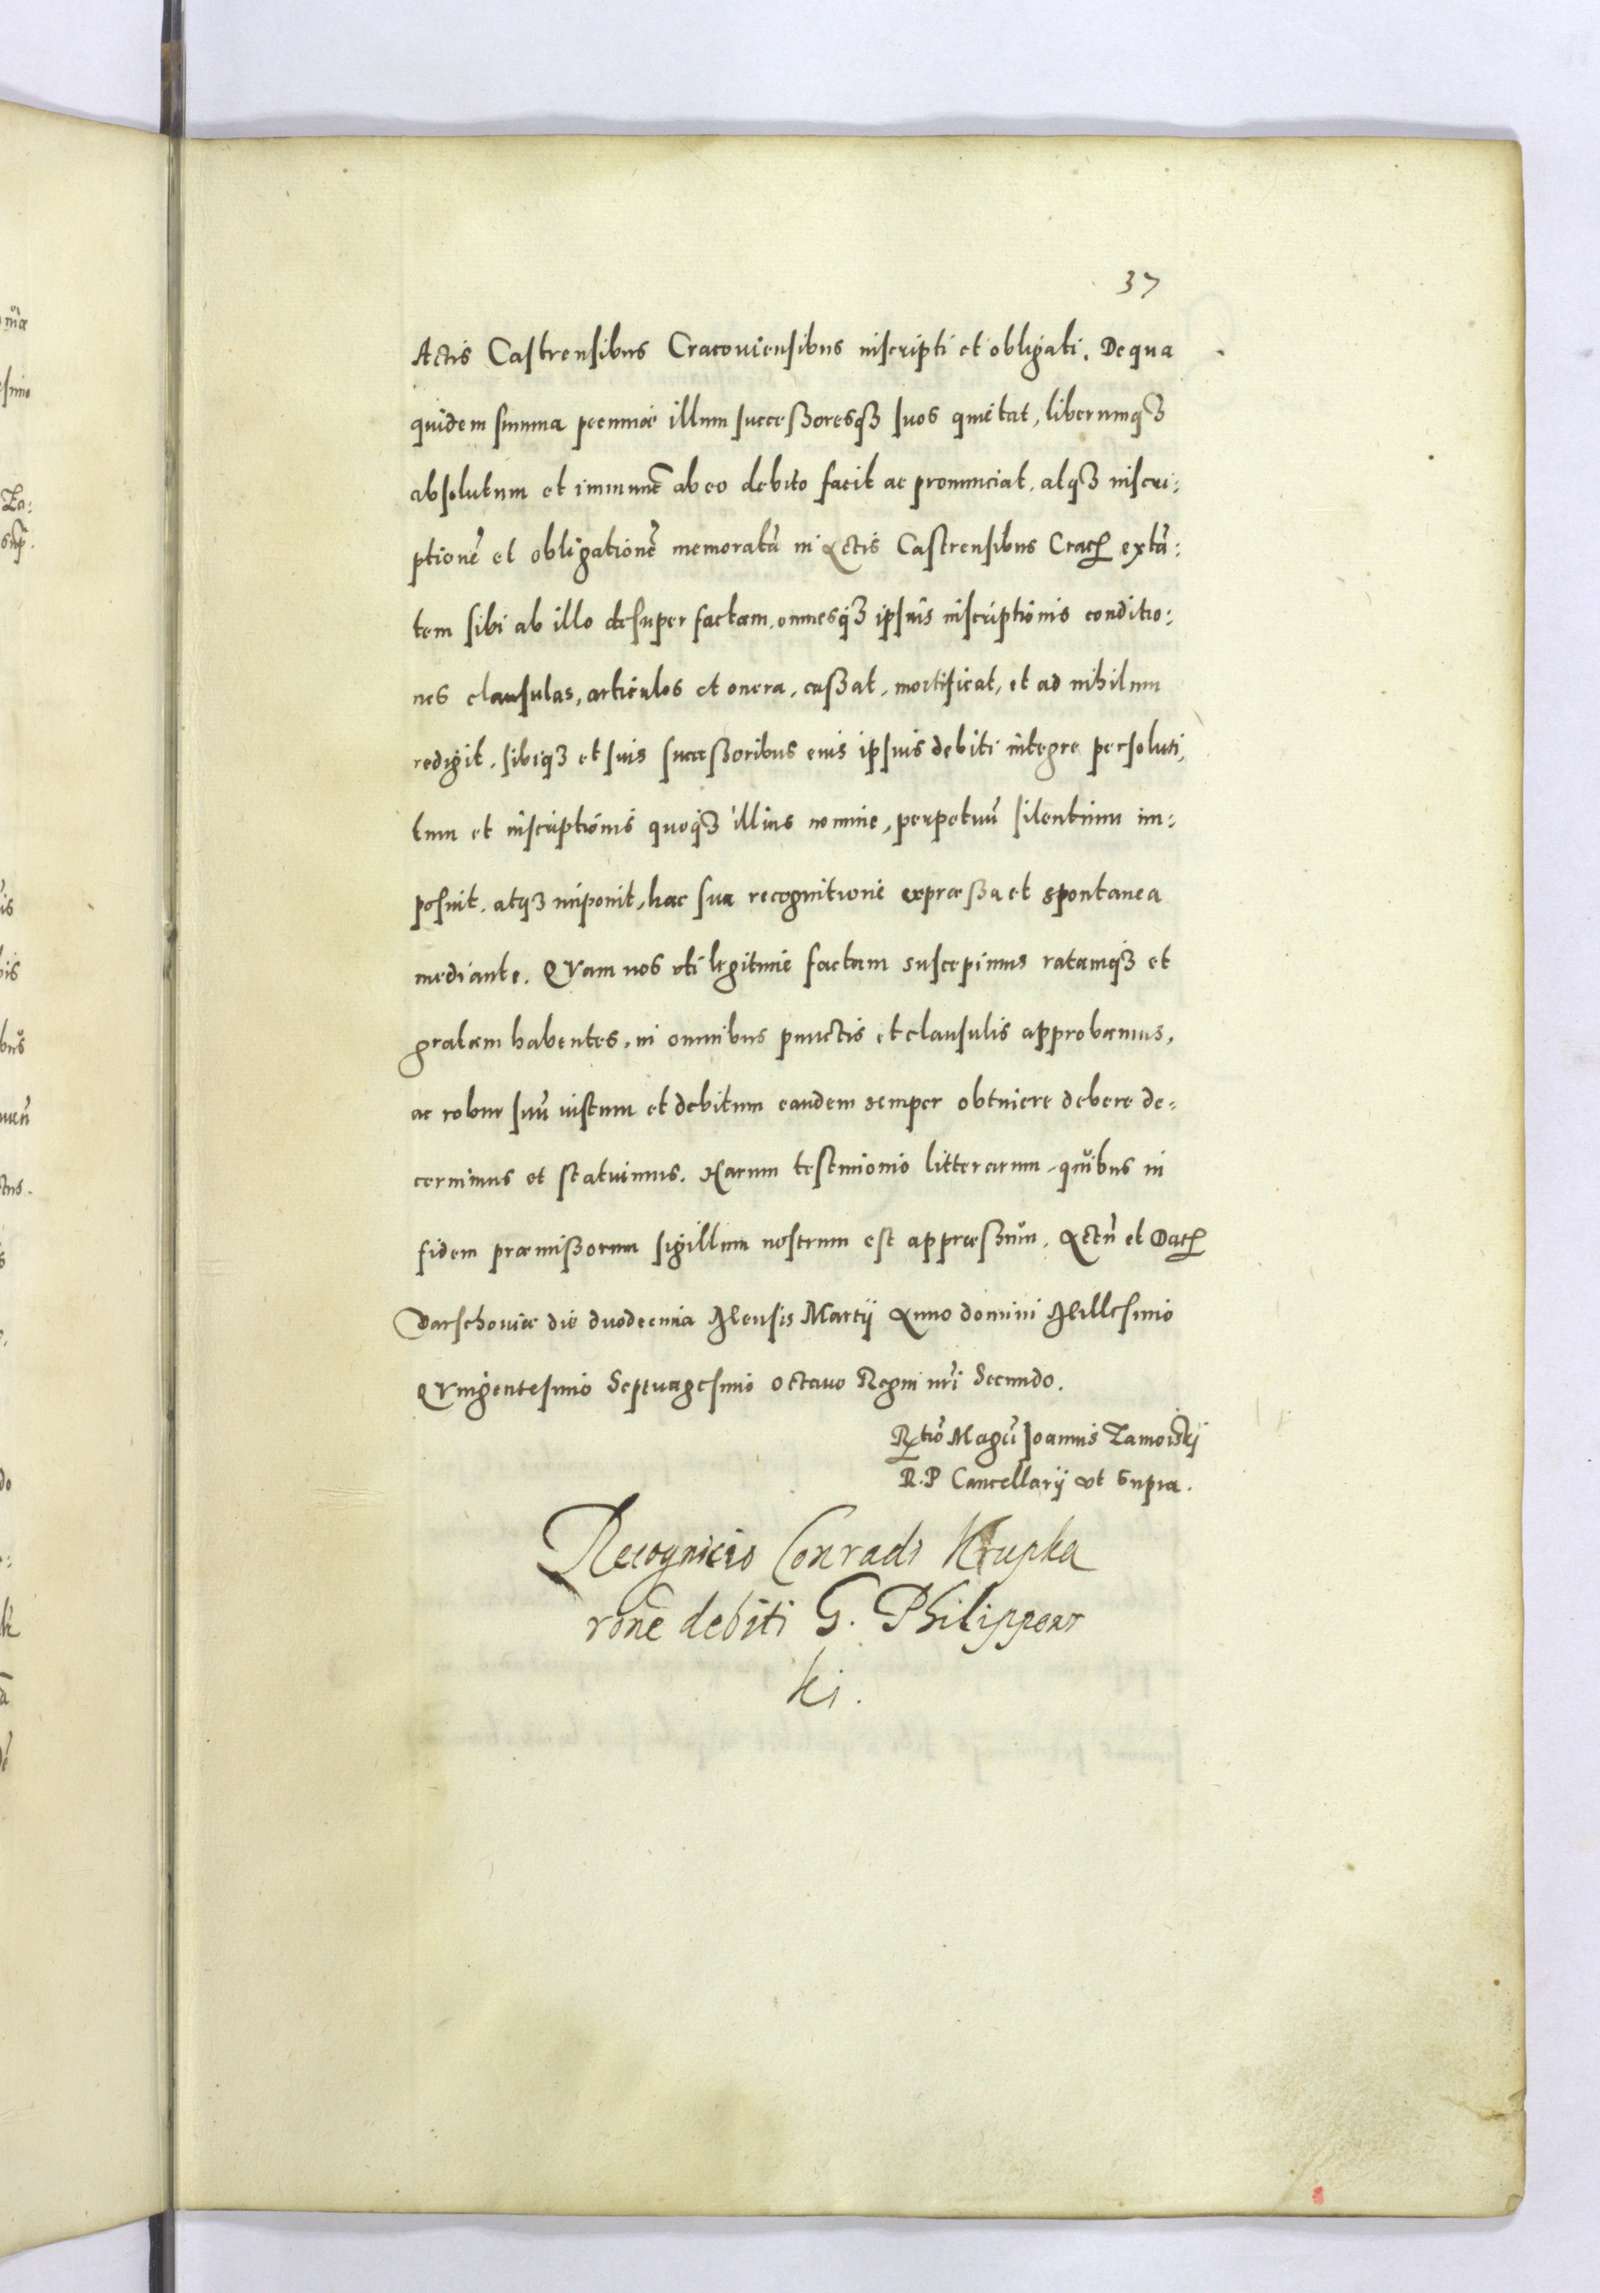 37
Actis Castrensibus Cracouiensibus inscripti et obligati. De qua
quidem summa pecuniæ illum successoresqȝ suos quietat, liberumqȝ
absolutum et immunē ab eo debito facit ac pronunciat. atqȝ inscri:
ptionē et obligationē memoratā in Actis Castrensibus Crac̃ extā:
tem sibi ab illo desuper factam. omnesqȝ ipsius inscriptionis conditio:
nes clausulas, articulos et onera, cassat, mortificat, et ad nihilum
redigit. sibiqȝ et suis successoribus eius ipsuis debiti integre persoluti,
tum et inscriptionis quoqȝ illius nomine, perpetuū silentium im:
posuit. atqȝ imponit, hac sua recognitione expræssa et spontanea
mediante. QVam nos vti legitime factam suscepimus ratamqȝ et
gratam habentes, in omnibus punctis et clausulis approbamus,
ac robur suū iustum et debitum eandem semper obtinere debere de:
cernimus et statuimus. Harum testimonio litterarum quibus in
fidem præmissorum sigillum nostrum est appræssum. Actū et Dat̃
Varschouiæ die duodecima Mensis Martij Anno domini Millesimo
QVingentesimo Septuagesimo octauo Regni nr̄i Secundo.
Rtio Magci Joannis Zamoiskij
R. P Cancellarij vt supra.
Recognicio Conradi Krupka
rone debiti G. Philippows
ki.